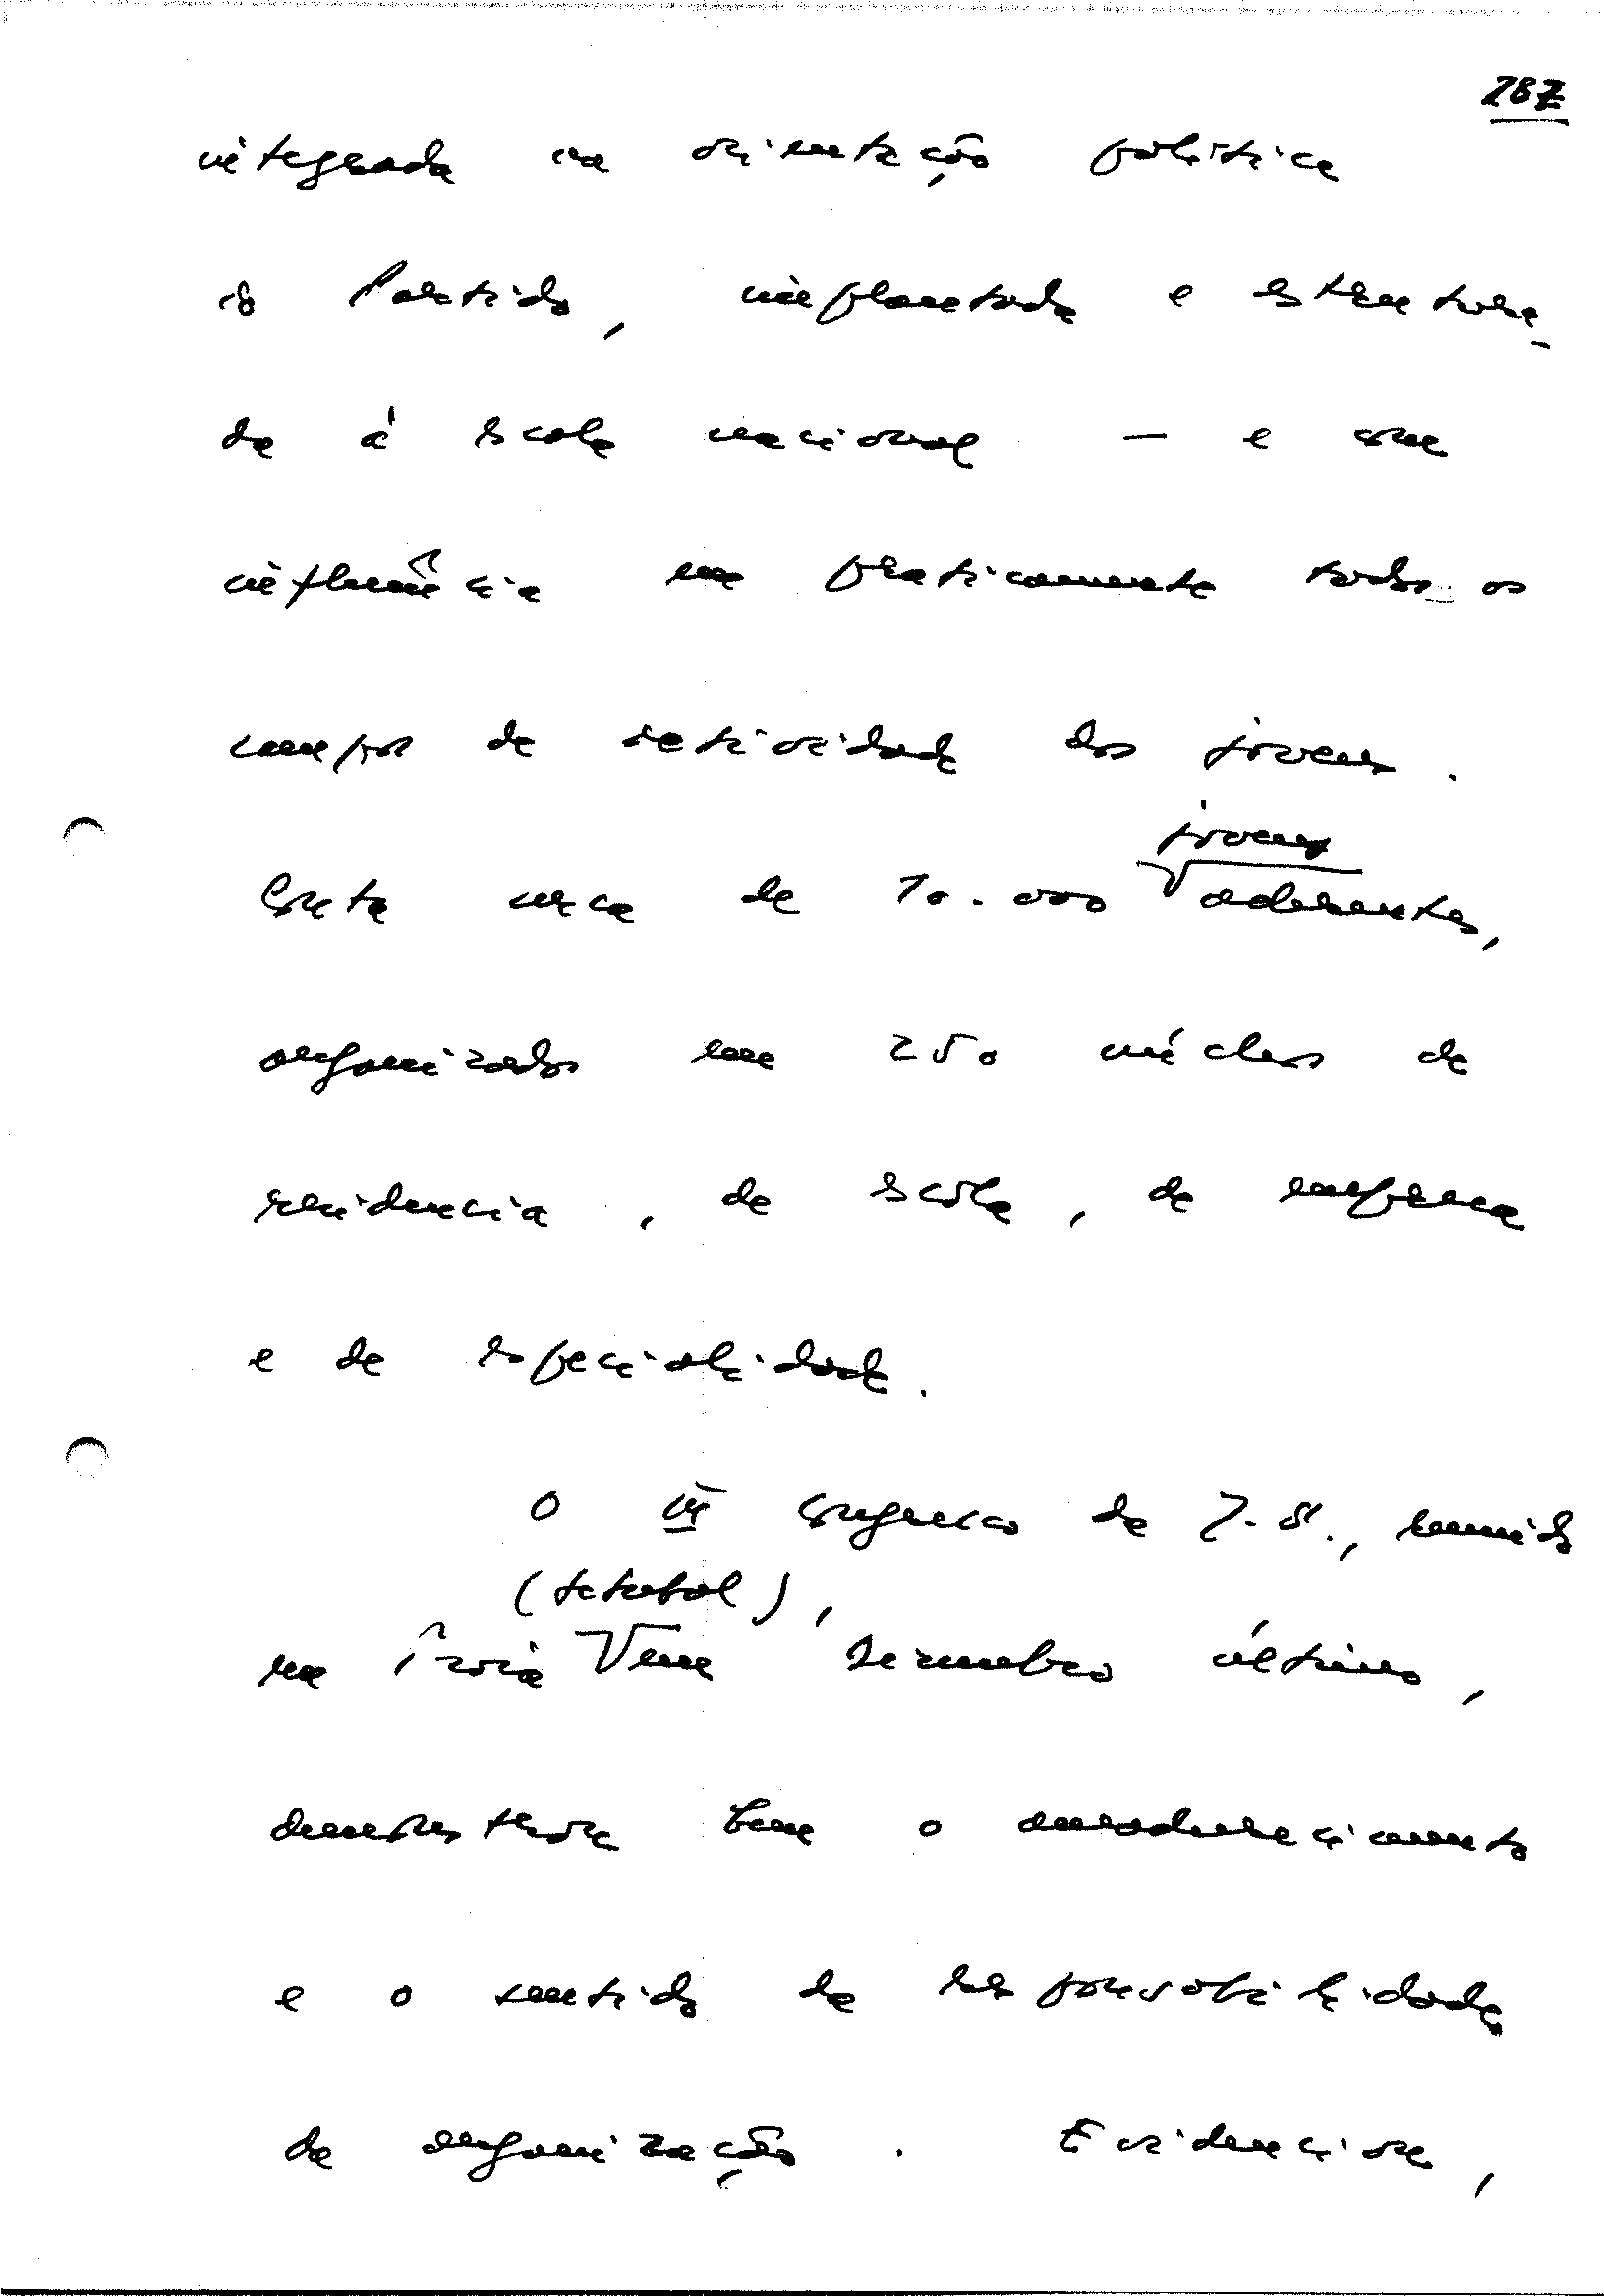 287
integrada na orientação política
do Partido, implantada e estrutura-
da à escala nacional — e sua
influência em praticamente todos os
campos de actividade dos jovens.
jovens
Conta cerca de 10.000 aderentes,
organizados em 250 núcleos de
residencia, de escola, de empresa
e de especialidade.
O Congresso da J.S., reunido
(Setubal),
na Tróia em Dezembro último,
demonstrou bem o amadurecimento
e o sentido de responsabilidade
da organização. Evidenciou,